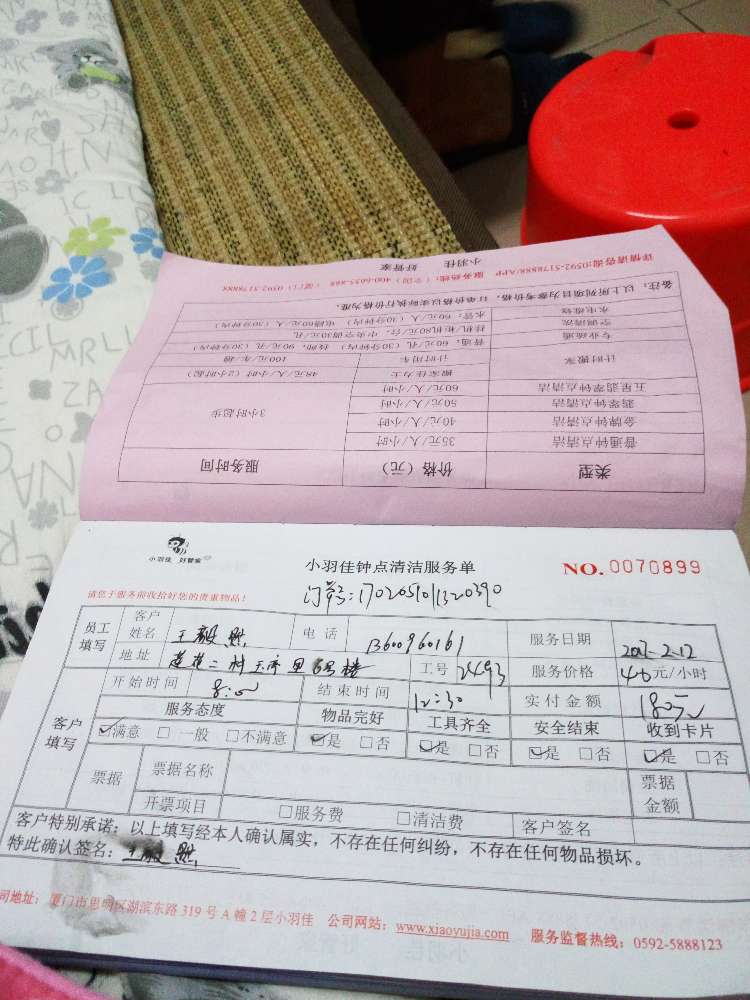 详情请咨询:0592-5178888/APP 服务热线:(全国)400-6055-888 (厦门)0592-5178888
小羽佳 好管家
类型 价格(元) 服务时间
普通钟点清洁 35元/人/小时 3小时起步
金牌钟点清洁 40元/人/小时
翡翠钟点清洁 50元/人/小时
五星翡翠钟点清洁 60元/人/小时
计时搬家 搬家佳力士 48元/人/小时(2小时起)
计时用车 100元/车/趟
专业疏通 普通:60元/孔(30分钟内) 特殊:90元/孔(30分钟)
空调清洗 挂机/柜机80元/台,中央空调30元/孔
水电维修 水管:60元/人(30分钟内) 电路60元/人(30分钟内)
备注:以上所列项目为参考价格,订单价格以实际执行价格为准。
小羽佳 好管家
小羽佳钟点清洁服务单
NO. 0070899
请您于服务前收拾好您的贵重物品!
订单号:1702051011320390
员工填写 客户姓名 王毅 电话 13600960161 服务日期 2017-2-12
地址 莲花二村 里 号楼 工号 2493 服务价格 40元/小时
客户填写 开始时间 8:00 结束时间 12:30 实付金额 180元
服务态度 物品完好 工具齐全 安全结束 收到卡片
☑满意 □一般 □不满意 ☑是 □否 ☑是 □否 ☑是 □否 ☑是 □否
票据 票据名称 票据金额
开票项目 □服务费 □清洁费 客户签名
客户特别承诺:以上填写经本人确认属实,不存在任何纠纷,不存在任何物品损坏。
特此确认签名: 王毅
司地址:厦门市思明区湖滨东路319号A幢2层小羽佳 公司网站:www.xiaoyujia.com 服务监督热线:0592-5888123